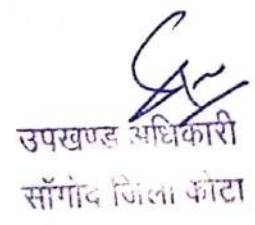 उपखण्ड अधिकारी
सॉगोद जिला कोटा